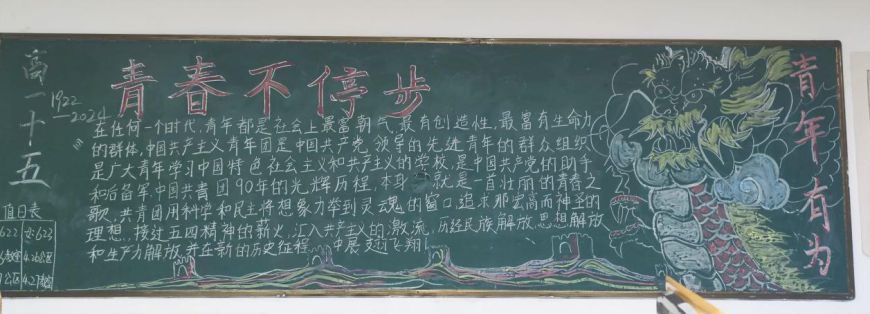 高一十五
1922
—2024
青春不停步
在任何一个时代,青年都是社会上最富朝气,最有创造性,最富有生命力
的群体,中国共产主义青年团是中国共产党领导的先进青年的群众组织
是广大青年学习中国特色社会主义和共产主义的学校,是中国共产党的助手
和后备军,中国共青团90年的光辉历程,本身 就是一首壮丽的青春之
歌,共青团用科学和民主将想象力举到灵魂的窗口追求那宏高而神圣的
理想,接过五四精神的薪火,汇入共产主义的激流,历经民族解放,思想解放
和生产力解放,并在新的历史征程 中展翅飞翔!
青年有为
值日表